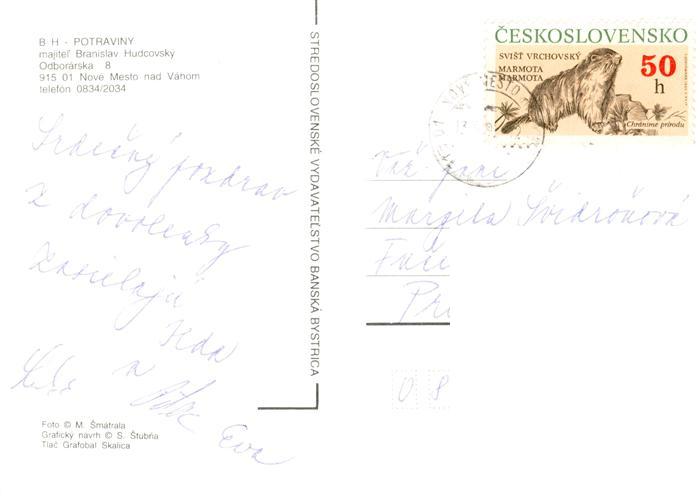 B H - POTRAVINY
majiteľ Branislav Hudcovský
Odborárska 8
915 01 Nové Mesto nad Váhom
telefón 0834/2034
Srdečný pozdrav
z dovolenky
zasielajú
a
Eva
Foto © M. Šmátrala
Grafický návrh © S. Štubňa
Tlač Grafobal Skalica
STREDOSLOVENSKÉ VYDAVATEĽSTVO BANSKÁ BYSTRICA
ČESKOSLOVENSKO
SVIŠŤ VRCHOVSKÝ
MARMOTA
MARMOTA
50
h
Chráníme přírodu
NOVÉ MESTO
Váž. pani
Margita Švidroňová
08